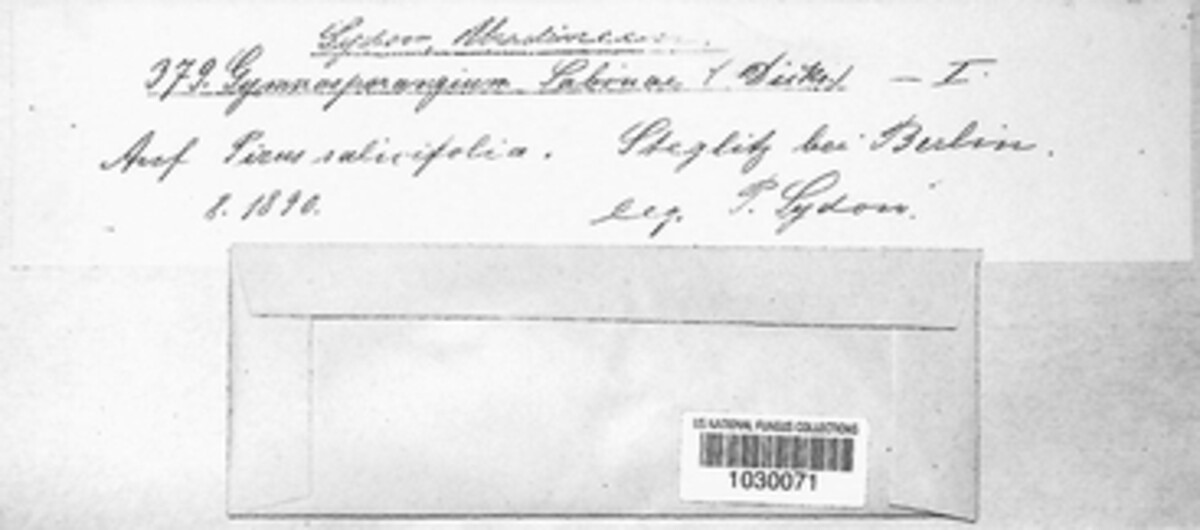 Sydow, Uredineen.
379. Gymnosporangium Sabinae (Dicks.) – I.
Auf Pirus salicifolia. Steglitz bei Berlin.
8. 1890. leg. P. Sydow.
US NATIONAL FUNGUS COLLECTIONS
1030071